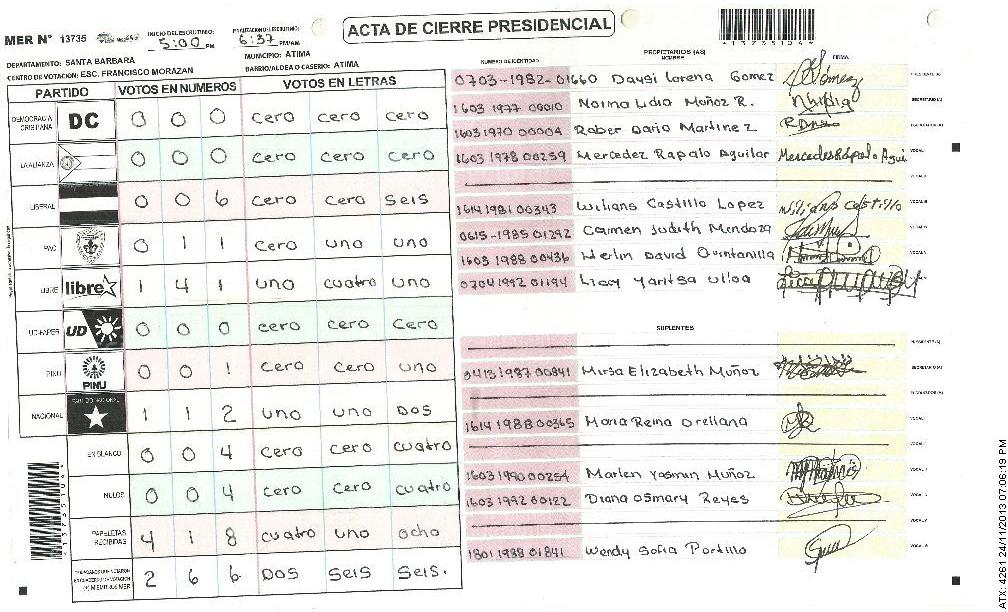 ACTA DE CIERRE PRESIDENCIAL
MER N° 13735
INICIO DEL ESCRUTINIO: 5:00 PM
FINALIZACION ESCRUTINIO: 6:37 PM/AM
DEPARTAMENTO: SANTA BARBARA
MUNICIPIO: ATIMA
CENTRO DE VOTACION: ESC. FRANCISCO MORAZAN
BARRIO/ALDEA O CASERIO: ATIMA
PARTIDO VOTOS EN NUMEROS VOTOS EN LETRAS
DEMOCRACIA CRISTIANA DC 0 0 0 cero cero cero
LA ALIANZA 0 0 0 cero cero cero
LIBERAL 0 0 6 cero cero seis
PAC 0 1 1 cero uno uno
LIBRE libre 1 4 1 uno cuatro uno
UD-FAPER UD 0 0 0 cero cero cero
PINU PINU 0 0 1 cero cero uno
NACIONAL PARTIDO NACIONAL 1 1 2 uno uno dos
EN BLANCO 0 0 4 cero cero cuatro
NULOS 0 0 4 cero cero cuatro
PAPELETAS RECIBIDAS 4 1 8 cuatro uno ocho
CIUDADANOS QUE VOTARON EN CUADERNO DE VOTACION (+) MIEMBROS MER 2 6 6 Dos seis seis.
4137351041
PROPIETARIOS (AS)
NUMERO DE IDENTIDAD NOMBRE FIRMA
0703-1982-01660 Daysi Lorena Gomez PRESIDENTE (A)
1603 1977 00010 Norma Lidia Muñoz R. SECRETARIO (A)
1603 1970 00004 Rober Dario Martinez ESCRUTADOR (A)
1603 1978 00259 Mercedez Rapalo Aguilar Mercedes Rápalo Agui VOCAL I
1614 1981 00343 Wilians Castillo Lopez Wilians castillo
0615-1985 01292 Carmen Judith Mendoza
1603 1988 00436 Herlin David Quintanilla
0704 1992 01194 Licy Yaritsa Ulloa
SUPLENTES
PRESIDENTE (A)
0413 1987 00841 Mirsa Elizabeth Muñoz SECRETARIO (A)
ESCRUTADOR (A)
1614 1988 00365 Maria Reina Orellana
1603 1990 00254 Marlen Yasmin Muñoz
1603 1992 00122 Diana Osmary Reyes
1801 1988 01841 Wendy Sofia Portillo
ATX: 4261 24/11/2013 07:06:19 PM